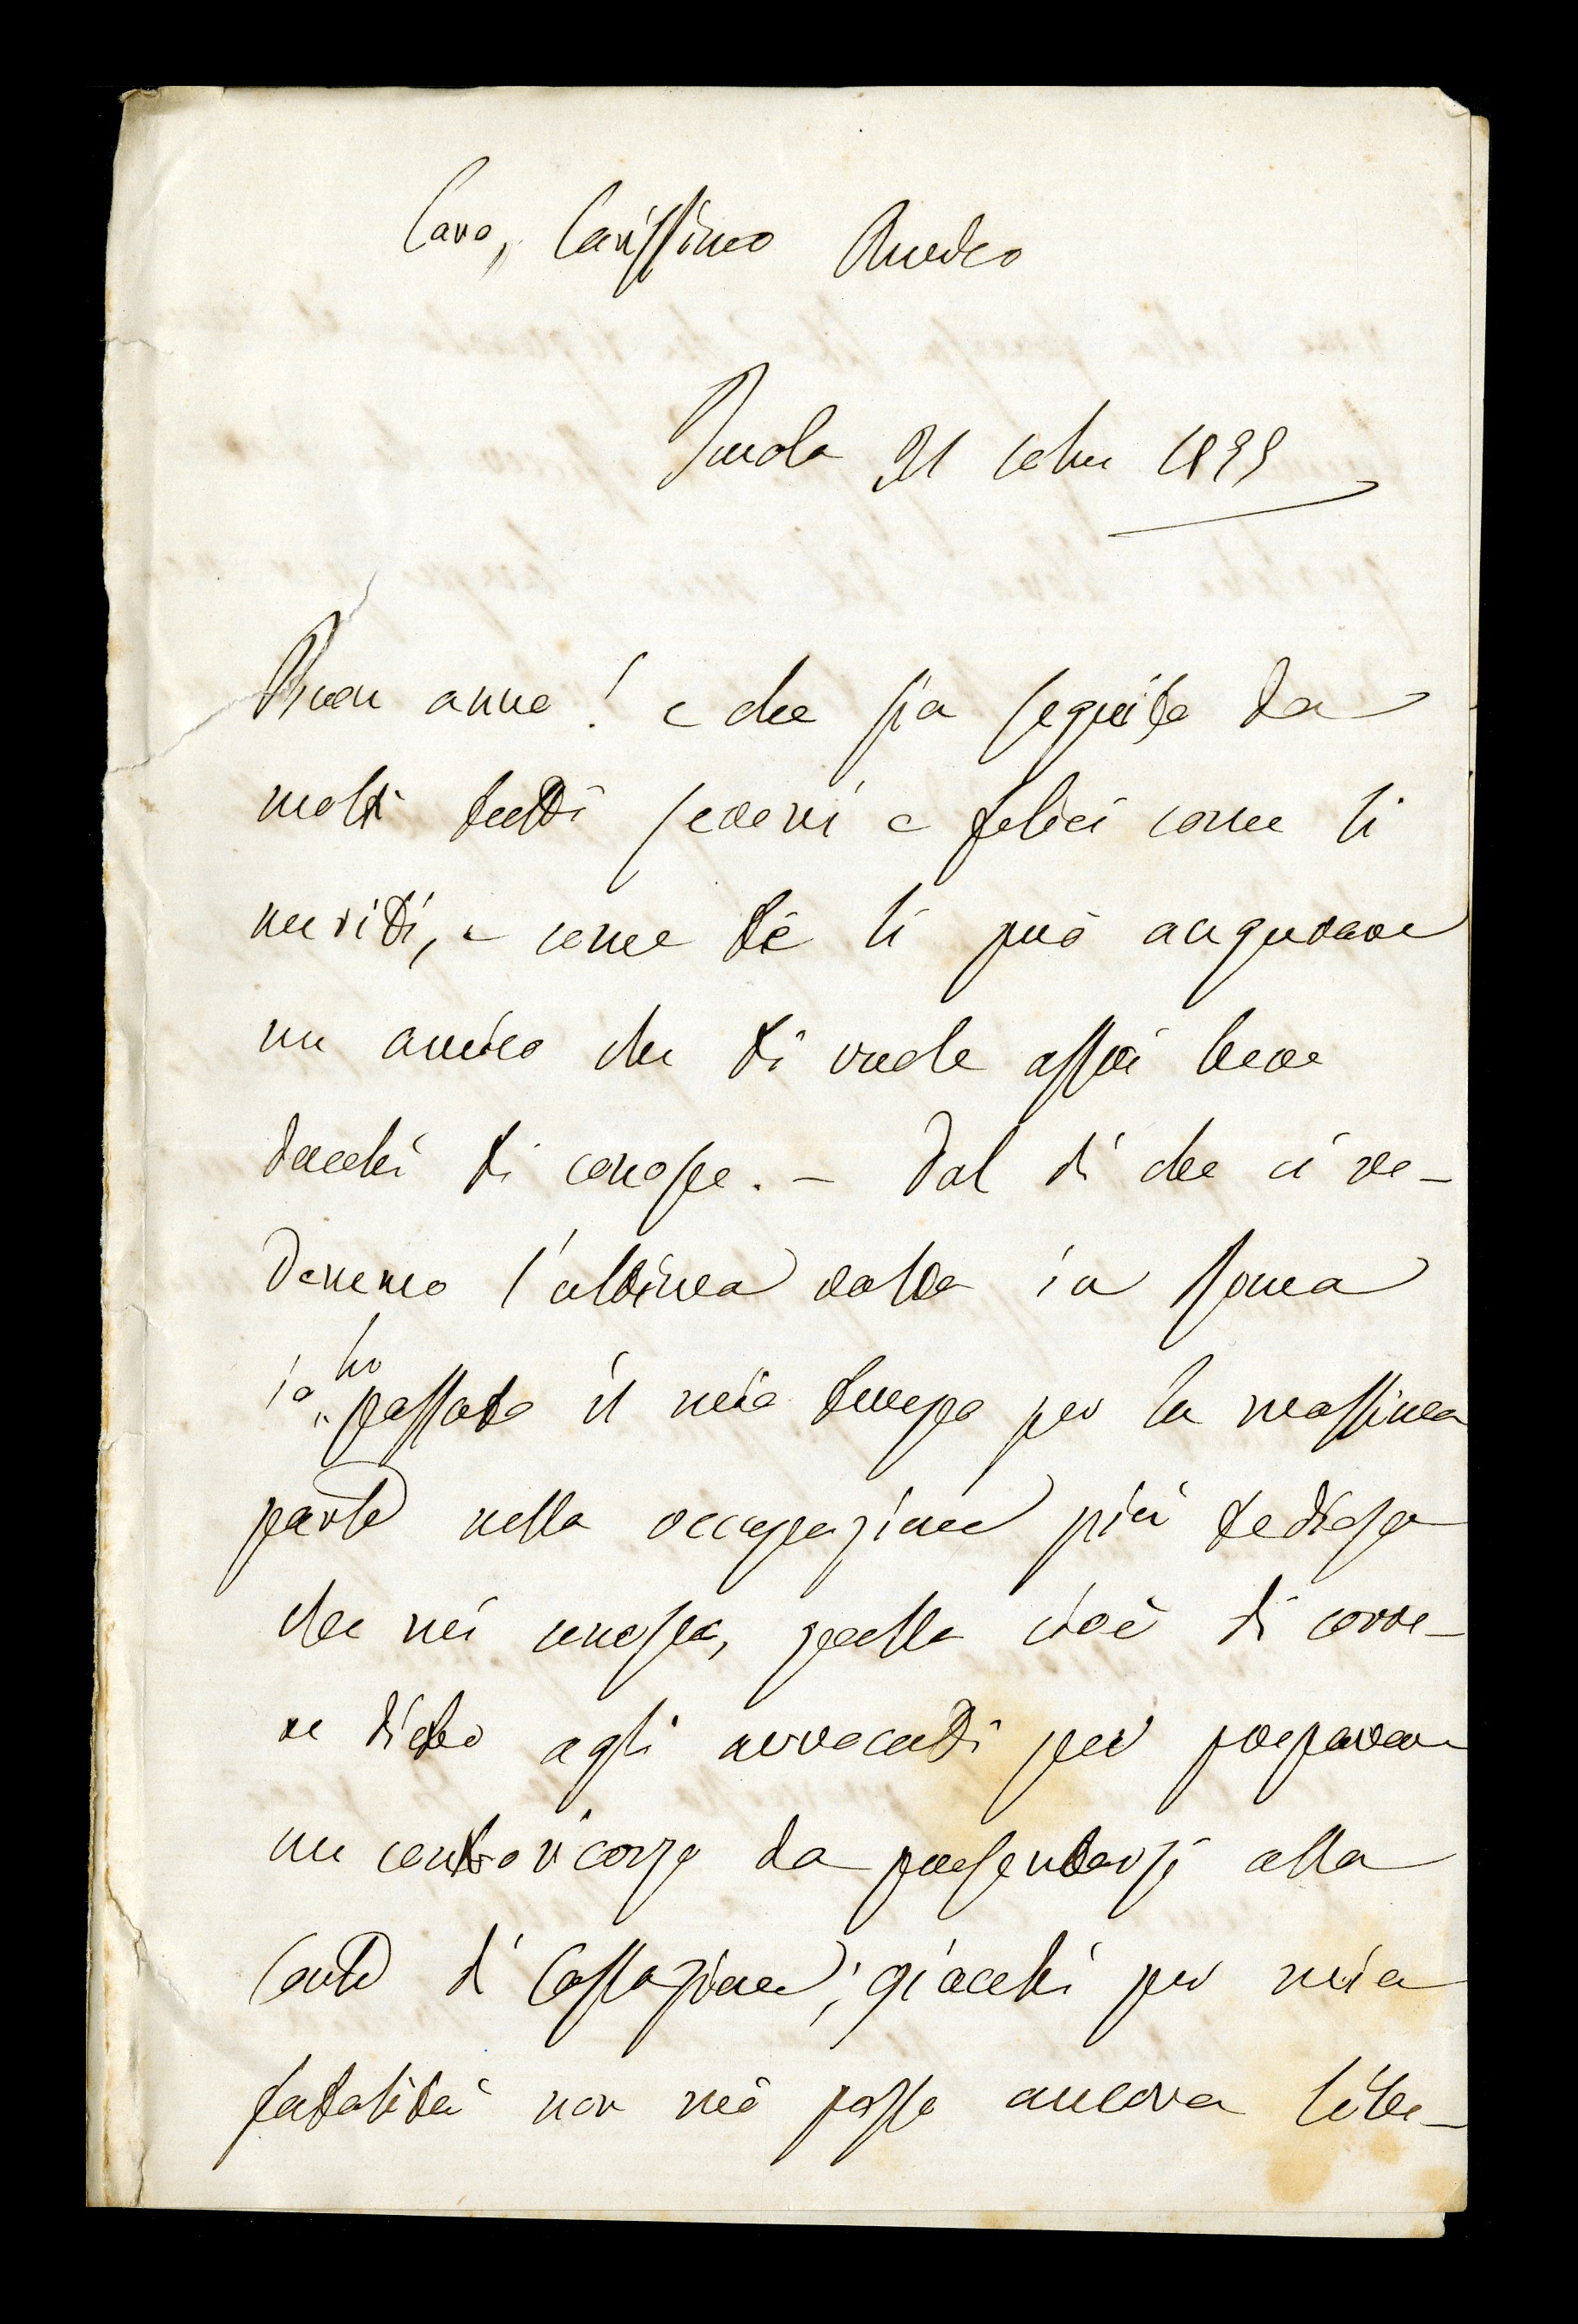 Caro, Carissimo Amedeo
Imola 31 xbre 1899
Buon anno! e che sia seguito da
molti tutti sereni e felici come ti
meriti, e come te li può augurare
un amico che ti vuole assai bene
dacchè ti conosce. – Dal dì che ci ve-
demmo l'ultima volta in Roma
io ho passato il mio tempo per la massima
parte nella occupazione più tediosa
che mi conosca, quella cioè di corre-
re dietro agli avvocati per preparare
un controricorso da presentarsi alla
Corte di Cassazione; giacchè per mia
fatalità non mi posso ancora libe-